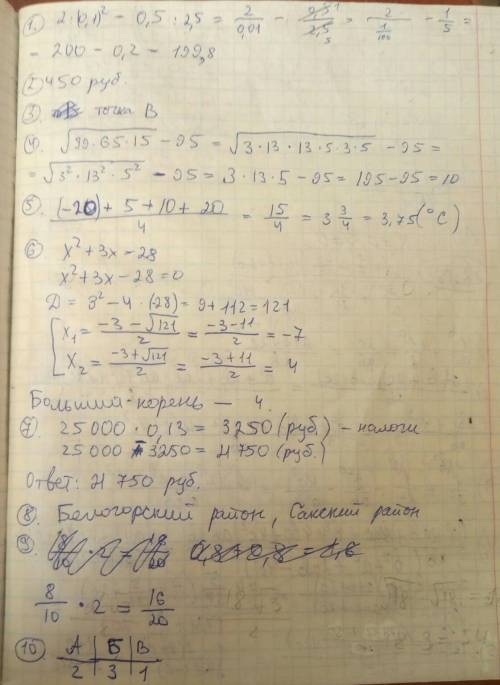 1. 2:(0,1)² - 0,5 : 2,5 = 2/0,01 - 0,5 1/2,5 5 = 2/(1/100) - 1/5 =
= 200 - 0,2 - 199,8
2. 450 руб.
3. точка В
4. √(39·65·15) - 95 = √(3·13·13·5·3·5) - 95 =
= √(3²·13²·5²) - 95 = 3·13·5 - 95 = 195 - 95 = 10
5. ((-20) + 5 + 10 + 20)/4 = 15/4 = 3 3/4 = 3,75 (°C)
6. x² + 3x - 28
x² + 3x - 28 = 0
D = 3² - 4·(28) = 9 + 112 = 121
x₁ = (-3 - √121)/2 = (-3 - 11)/2 = -7
x₂ = (-3 + √121)/2 = (-3 + 11)/2 = 4
Больший корень — 4.
7. 25 000 · 0,13 = 3250 (руб.) - налоги
25 000 - 3250 = 21 750 (руб.)
Ответ: 21 750 руб.
8. Белогорский район, Сакский район
9. 0,8 + 0,8 = 1,6
8/10 · 2 = 16/20
10. А | Б | В
2 | 3 | 1